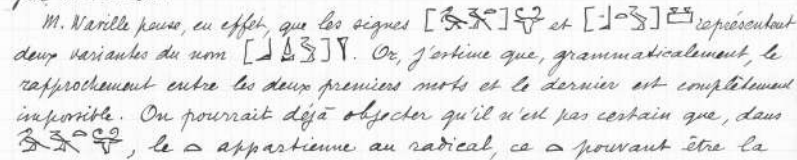 M. Varille pense, en effet, que les signes [] et [] représentent
deux variantes du nom []. Or, j'estime que, grammaticalement, le
rapprochement entre les deux premiers mots et le dernier est complètement
impossible. On pourrait déjà objecter qu'il n'est pas certain que, dans
, le appartienne au radical, ce pouvant être la